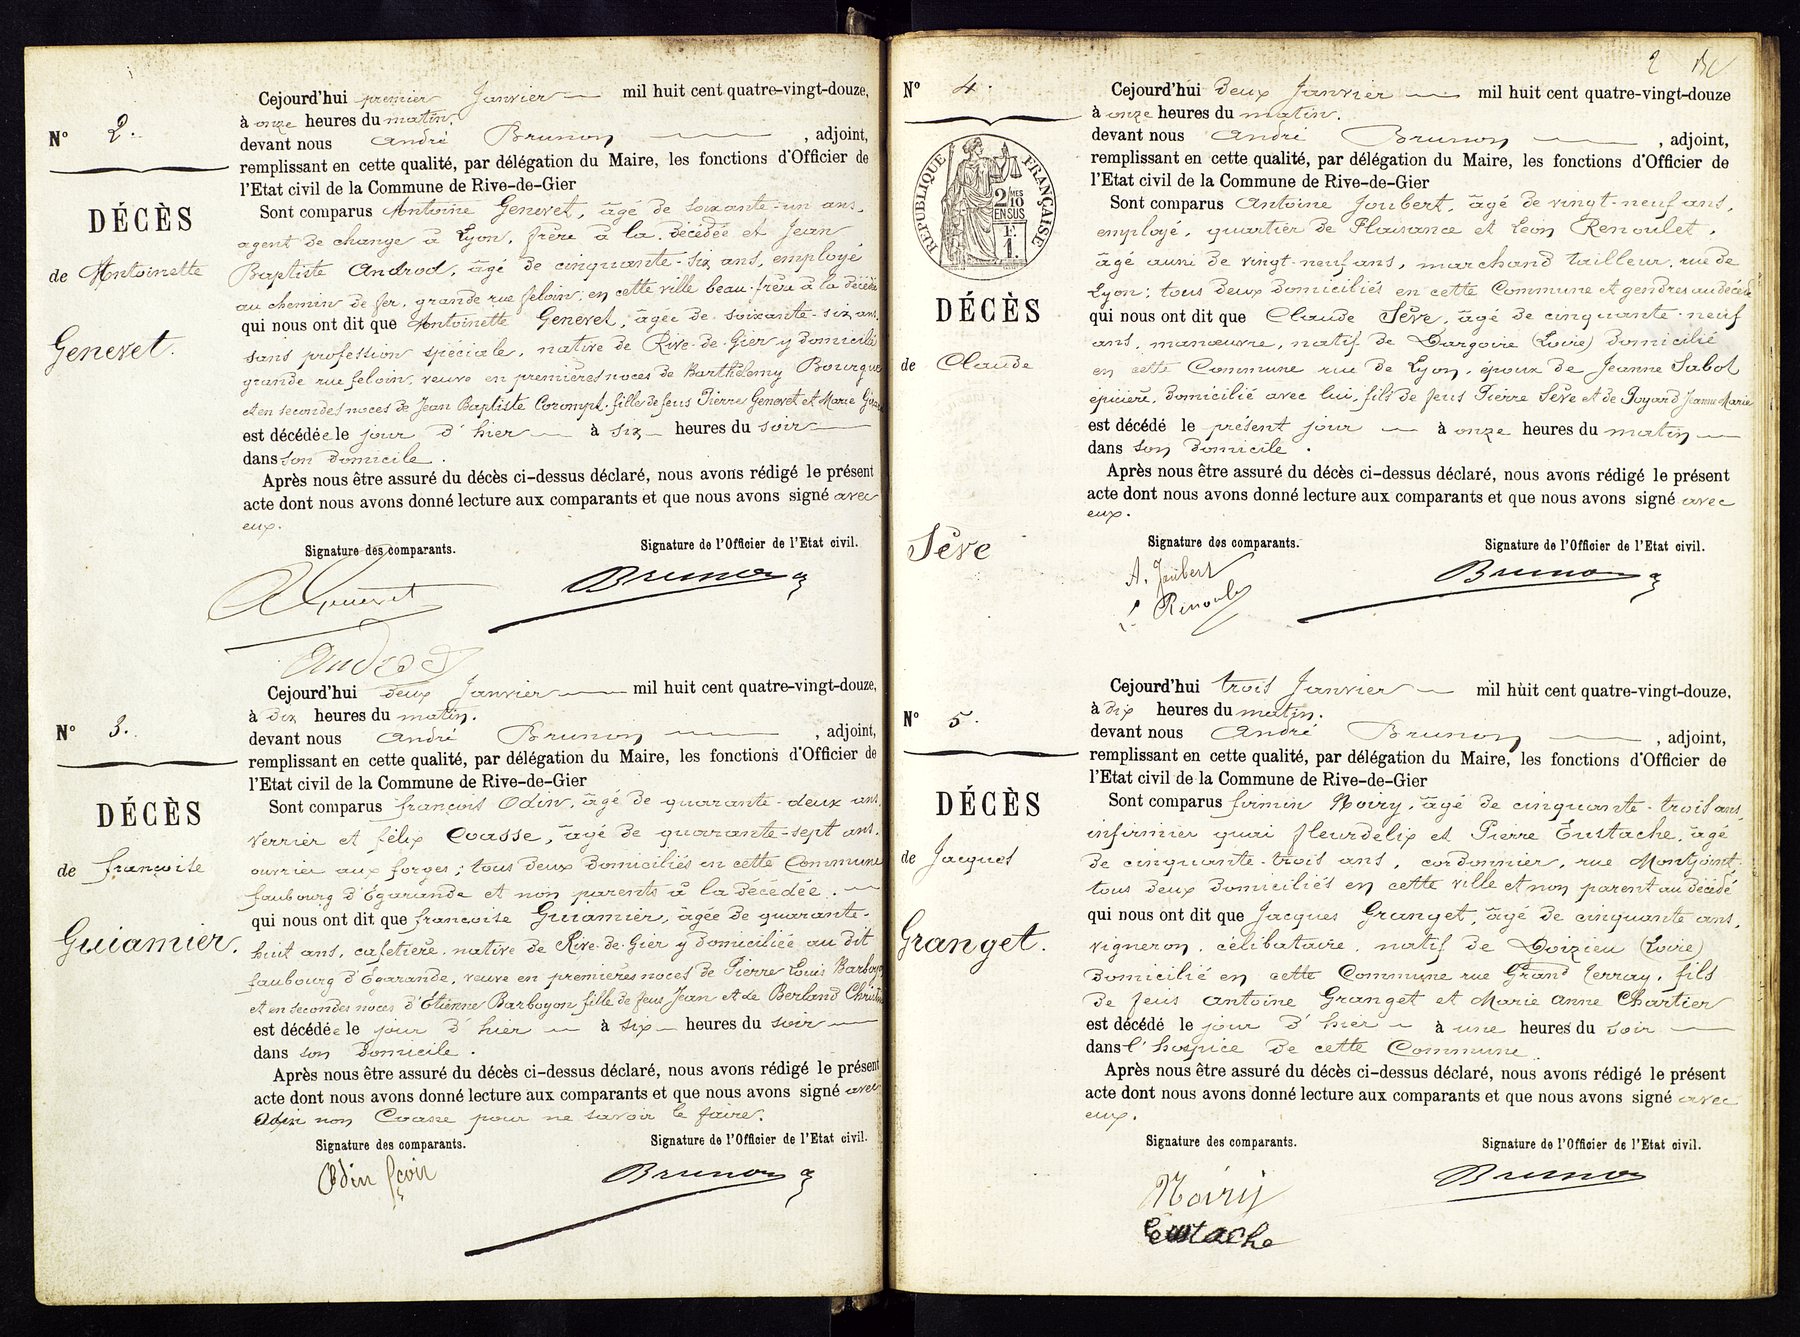 Cejourd'hui premier Janvier mil huit cent quatre-vingt-douze,
à onze heures du matin.
N° 2.
devant nous André Brunon, adjoint,
remplissant en cette qualité, par délégation du Maire, les fonctions d'Officier de
l'Etat civil de la Commune de Rive-de-Gier
DÉCÈS
de Antoinette
Genevet.
Sont comparus Antoine Genevet, âgé de soixante-un ans,
agent de change à Lyon, frère à la décédée et Jean
Baptiste Androd, âgé de cinquante-six ans, employé
au chemin de fer, grande rue feloin, en cette ville beau-frère à la décédée
qui nous ont dit que Antoinette Genevet, âgée de soixante-six ans,
sans profession spéciale, native de Rive-de-Gier y domiciliée
grande rue feloin, veuve en premières noces de Barthélemy Bourgue
et en secondes noces de Jean Baptiste Corompt, fille de feus Pierre Genevet et Marie
est décédée le jour d'hier à six heures du soir
dans son domicile.
Après nous être assuré du décès ci-dessus déclaré, nous avons rédigé le présent
acte dont nous avons donné lecture aux comparants et que nous avons signé avec
eux.
Signature des comparants. Signature de l'Officier de l'Etat civil.
Genevet Brunon
Androd
Cejourd'hui deux Janvier mil huit cent quatre-vingt-douze,
à dix heures du matin.
N° 3.
devant nous André Brunon, adjoint,
remplissant en cette qualité, par délégation du Maire, les fonctions d'Officier de
l'Etat civil de la Commune de Rive-de-Gier
DÉCÈS
de françoise
Guiamier.
Sont comparus françois Odin, âgé de quarante-deux ans,
verrier et félix Coasse, âgé de quarante-sept ans,
ouvrier aux forges; tous deux domiciliés en cette Commune
faubourg d'Egarande et non parents à la décédée.
qui nous ont dit que françoise Guiamier, âgée de quarante-
huit ans, cafetière, native de Rive-de-Gier y domiciliée au dit
faubourg d'Egarande, veuve en premières noces de Pierre Louis Barboyon
et en secondes noces d'Etienne Barboyon fille de feus Jean et de Berland
est décédée le jour d'hier à six heures du soir
dans son domicile.
Après nous être assuré du décès ci-dessus déclaré, nous avons rédigé le présent
acte dont nous avons donné lecture aux comparants et que nous avons signé avec
Odin non Coasse pour ne savoir le faire.
Signature des comparants. Signature de l'Officier de l'Etat civil.
Odin fçois Brunon
2
N° 4.
Cejourd'hui deux Janvier mil huit cent quatre-vingt-douze
à onze heures du matin.
devant nous André Brunon, adjoint,
remplissant en cette qualité, par délégation du Maire, les fonctions d'Officier de
l'Etat civil de la Commune de Rive-de-Gier
RÉPUBLIQUE FRANÇAISE
2/10MES
EN SUS
F.
1.
DÉCÈS
de Claude
Sève
Sont comparus Antoine Joubert, âgé de vingt-neuf ans,
employé, quartier de Plaisance et Léon Renoulet,
âgé aussi de vingt-neuf ans, marchand tailleur, rue de
Lyon; tous deux domiciliés en cette Commune et gendres au décédé
qui nous ont dit que Claude Sève, âgé de cinquante-neuf
ans, manœuvre, natif de Dargoire (Loire) domicilié
en cette Commune rue de Lyon, époux de Jeanne Sabot
épicière, domicilié avec lui, fils de feus Pierre Sève et de Goyard Jeanne Marie
est décédé le présent jour à onze heures du matin
dans son domicile.
Après nous être assuré du décès ci-dessus déclaré, nous avons rédigé le présent
acte dont nous avons donné lecture aux comparants et que nous avons signé avec
eux.
Signature des comparants. Signature de l'Officier de l'Etat civil.
A. Joubert Brunon
L. Renoulet
Cejourd'hui trois Janvier mil huit cent quatre-vingt-douze,
à dix heures du matin.
N° 5.
devant nous André Brunon, adjoint,
remplissant en cette qualité, par délégation du Maire, les fonctions d'Officier de
l'Etat civil de la Commune de Rive-de-Gier
DÉCÈS
de Jacques
Granget.
Sont comparus firmin Noiry, âgé de cinquante-trois ans,
infirmier quai fleurdelix et Pierre Eustache, âgé
de cinquante-trois ans, cordonnier, rue Montjoint,
tous deux domiciliés en cette ville et non parent au décédé
qui nous ont dit que Jacques Granget, âgé de cinquante ans,
vigneron, célibataire, natif de Doizieu (Loire)
domicilié en cette Commune rue Grand Terray, fils
de feus Antoine Granget et Marie Anne Chartier
est décédé le jour d'hier à une heures du soir
dans l'hospice de cette Commune.
Après nous être assuré du décès ci-dessus déclaré, nous avons rédigé le présent
acte dont nous avons donné lecture aux comparants et que nous avons signé avec
eux.
Signature des comparants. Signature de l'Officier de l'Etat civil.
Noiry Brunon
Eustache